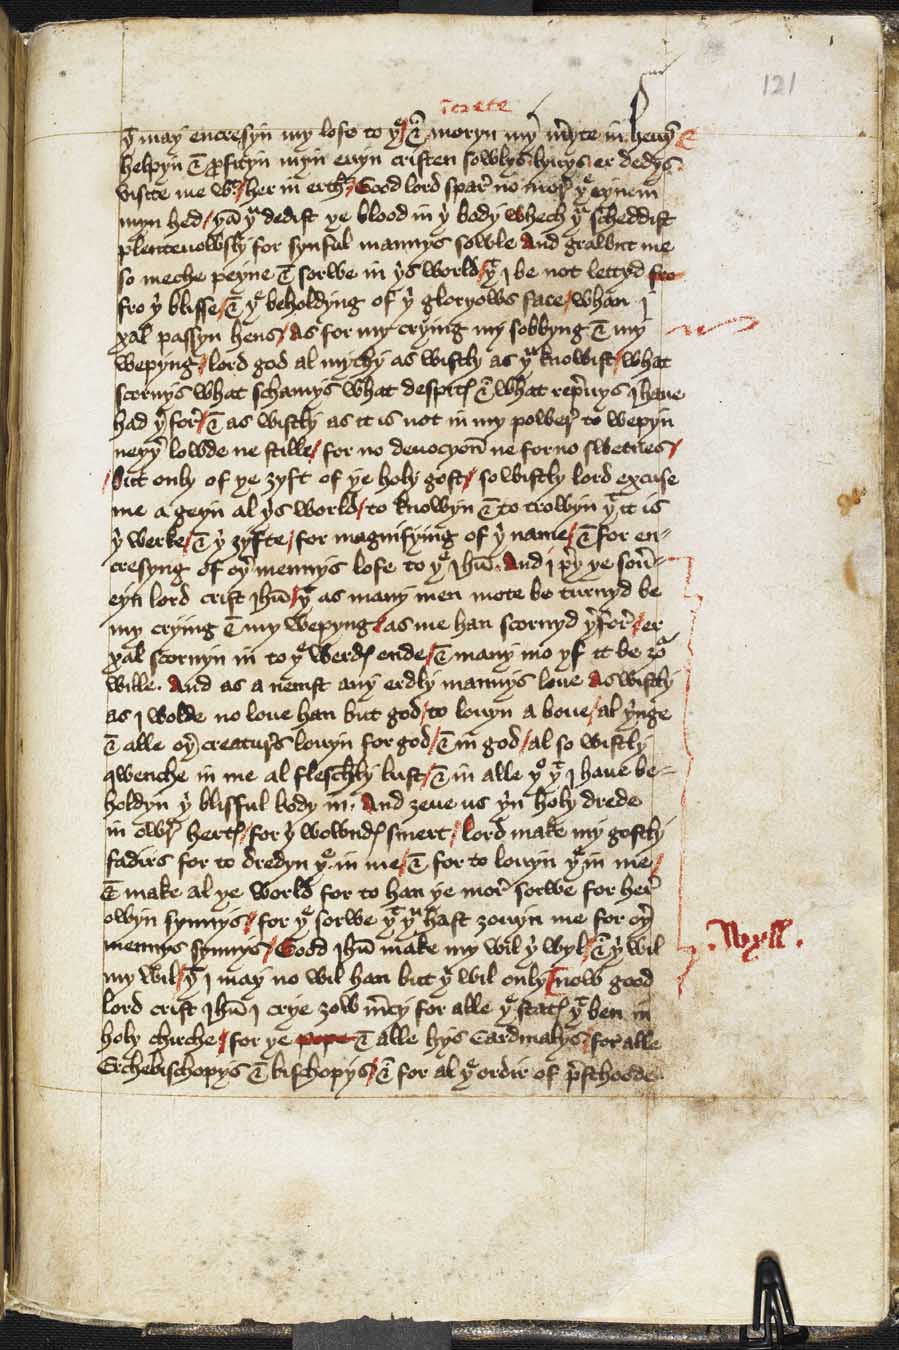 121
icrete
þt may encresyn my lofe to þe / & moryn my mede in heuen /
helpyn & profityn myn euyn cristen sowlys lyuys er dedys .
visite me wt / her in erth / Good lord spar no mor þe eyne in
myn hed / þan þu dedist þe blood in þi body whech þu scheddist
plenteuowsly for synful mannys sowle And grawnt me
so meche peyne & sorwe in þis world / þt j be not lettyd fro
fro þi blisse / & þe beholdyng of þi gloryows face / whan j
xal passyn hens / As for my crying my sobbyng & my
wepyng / lord god al mythy as wistly as þu knowist / what
scornys what schamys what despitys & what repreuys j haue
had þerfor / & as wistly as it is not in my power to wepyn
neyþer lowde ne stille / for no deuocyon ne for no swetnes /
/ but only of þe zyft of þe holy gost / so wistly lord excuse
me a geyn al þis world / to knowyn & to trowyn þt it is
þi werke / & þi zyfte / for magnifying of þi name / & for en-
cresyng of oþer mennys lofe to þe jhu . And j prey þe souer-
eyn lord crist jhu / þt as many men mote be turnyd be
my crying & my wepyng / as me han scornyd þerfor / er
xal scornyn in to þe werdys ende / & many mo yf it be zor
wille . And as a nemst any erdly mannys loue as wistly
as j wolde no loue han but god / to louyn a boue / al þinge
& alle oþer creaturs louyn for god / & in god / al so wistly
qwenche in me al fleschly lust / & in alle þo þt j haue be-
holdyn þi blisful body in . And zeue us þin holy drede
in owr hertys / for þi wowndys smert / Lord make my gostly
fadirs for to dredyn þe in me / & for to louyn þe in me /
& make al þe world for to han þe mor sorwe for her
owyn synnys / for þe sorwe þt þu hast zouyn me for oþer
mennys synnys / Good jhu make my wil þi wyl / & þi wil
.Wyll.
my wil / þt j may no wil han but þi wil only / now good
lord crist jhu j crye zow mercy for alle þe statys þt ben in
holy chirche / for þe pope & alle hys Cardinalys / for alle
Erchebischopys & bischopys / & for al þe ordir of presthoode .